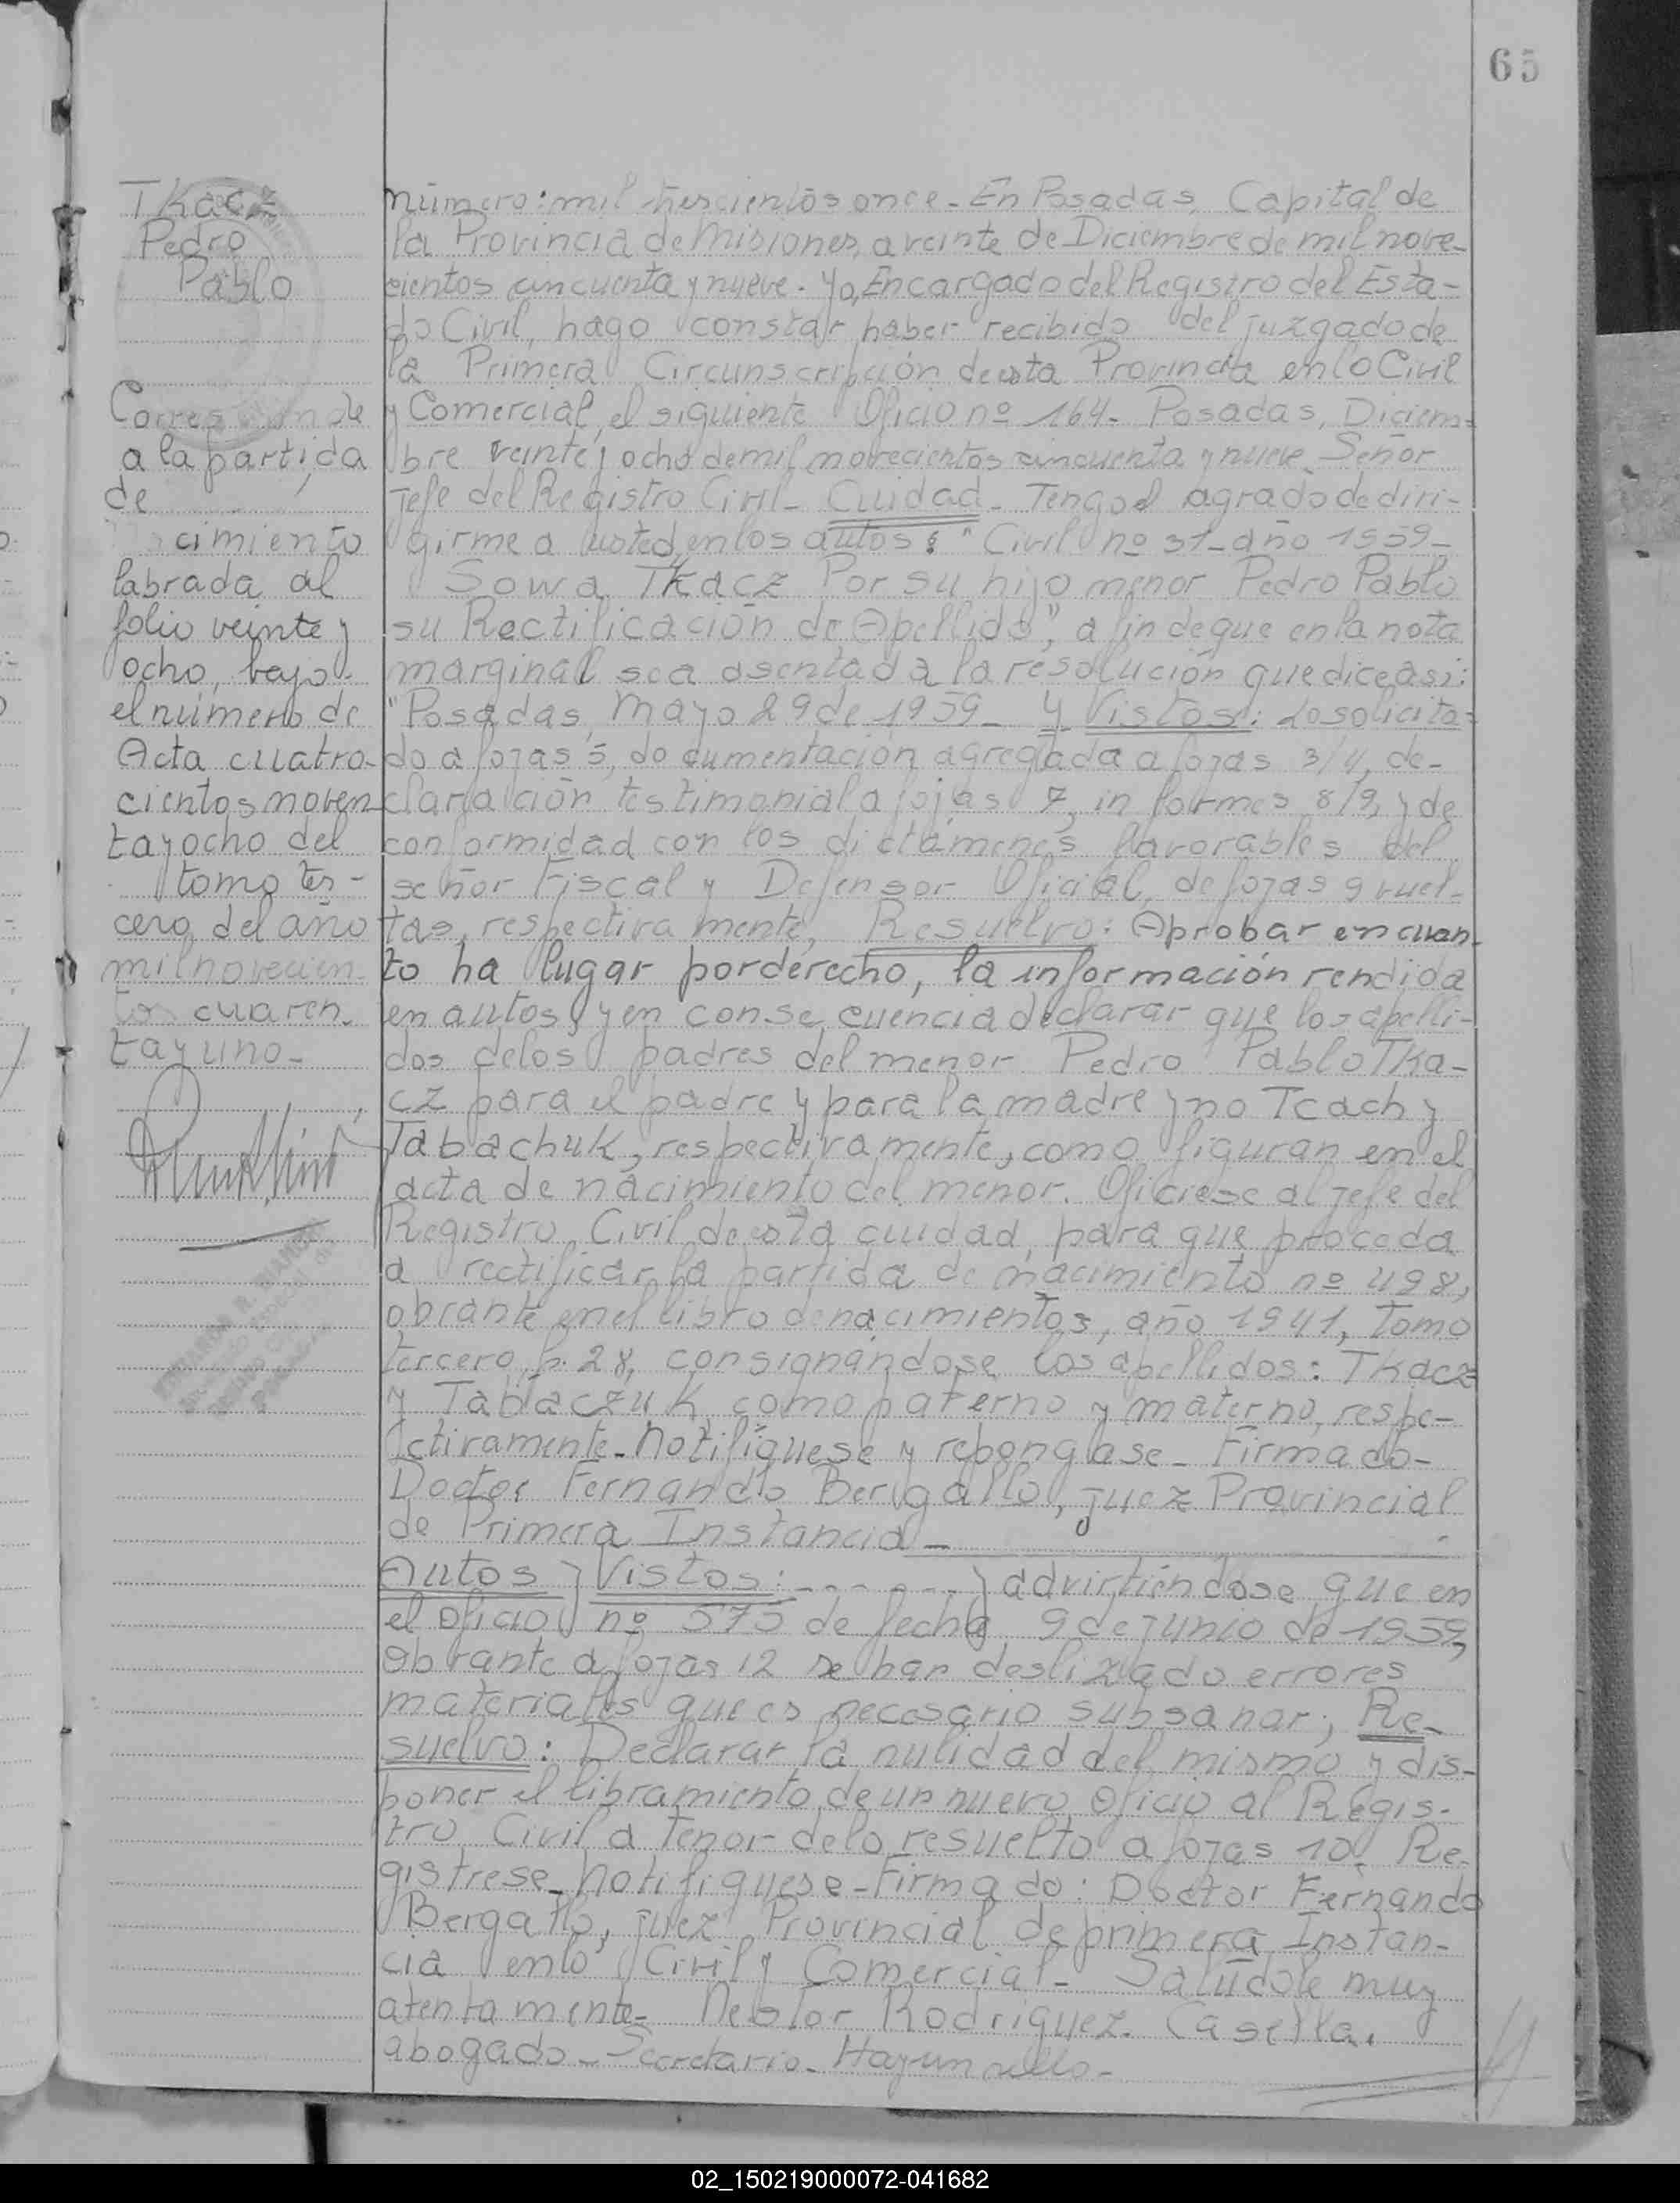 65
Tkacz
Pedro
Pablo
Corresponde
a la partida
de
cimiento
labrada al
folio veinte y
ocho, bajo
el número de
Acta cuatro-
cientos noven
ta y ocho del
tomo ter-
cero del año
mil novecien-
tos cuaren.
ta y uno-
número: mil trescientos once- En Posadas, Capital de
la Provincia de Misiones, a veinte de Diciembre de mil nove-
cientos cincuenta y nueve. Yo, Encargado del Registro del Esta-
do Civil, hago constar haber recibido del juzgado de
la Primera Circunscripción de esta Provincia en lo Civil
y Comercial, el siguiente Oficio nº 164- Posadas, Diciem-
bre veinte y ocho de mil novecientos cincuenta y nueve. Señor
Jefe del Registro Civil- Cuidad- Tengo el agrado de diri-
girme a usted, en los autos: "Civil nº 31- año 1959-
Sowa Tkacz Por su hijo menor Pedro Pablo
su Rectificación de Apellido", a fin de que en la nota
marginal sea asentada la resolución que dice asi:
"Posadas, Mayo 29 de 1959- Y Vistos: Lo solicita-
do a fojas 5, documentación agregada a fojas 3/4, de-
claración testimonial a fojas 7, informes 8/9, y de
conformidad con los dictámenes favorables del
señor Fiscal y Defensor Oficial, de fojas 9 vuel-
tas, respectivamente, Resuelvo: Aprobar en cuan-
to ha lugar por derecho, la información rendida
en autos y en consecuencia declarar que los apelli-
dos de los padres del menor Pedro Pablo Tka-
cz para el padre y para la madre y no Tcach y
Tabachuk, respectivamente, como figuran en el
acta de nacimiento del menor. Ofíciese al jefe del
Registro Civil de esta ciudad, para que proceda
a rectificar la partida de nacimiento nº 498,
obrante en el libro de nacimientos, año 1941, Tomo
tercero, f. 28, consignándose los apellidos: Tkacz
y Tablaczuk como paterno y materno, respe-
ctivamente- Notifíquese y repongase- Firmado-
Doctor Fernando Bergallo, juez Provincial
de Primera Instancia-
Autos y Vistos: - - - - - - - y advirtiéndose que en
el oficio nº 573 de fecha 9 de junio de 1959,
obrante a fojas 12 se han deslizado errores
materiales que es necesario subsanar; Re-
suelvo: Declarar la nulidad del mismo y dis-
poner el libramiento de un nuevo oficio al Regis-
tro Civil a tenor de lo resuelto a fojas 10. Re-
gistrese- Notifiquese- Firmado: Doctor Fernando
Bergallo, juez Provincial de primera Instan-
cia en lo Civil y Comercial- Salúdole muy
atentamente- Nestor Rodriguez. Casella.
abogado- Secretario- Hay un sello-
02_150219000072-041682